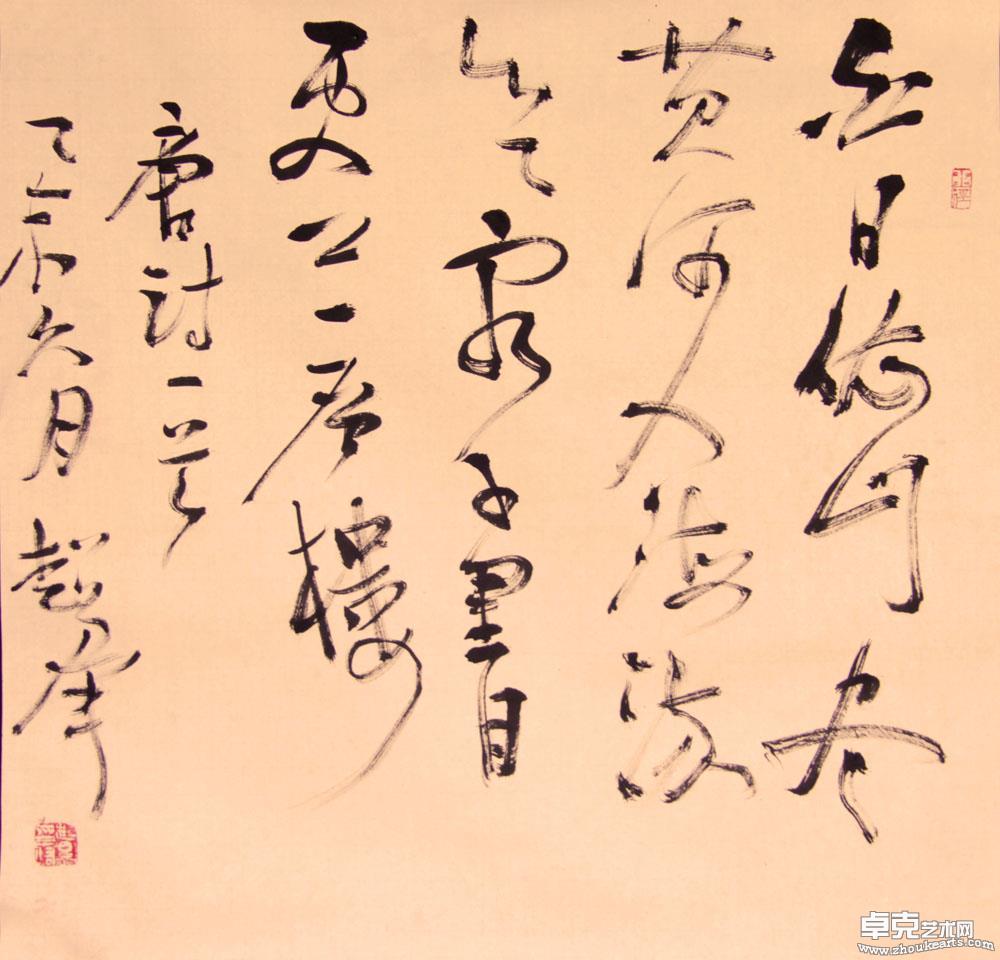 白日依山尽
黄河入海流
欲穷千里目
更上一层樓
唐詩一首
乙未六月
卓克艺术网
www.zhoukearts.com